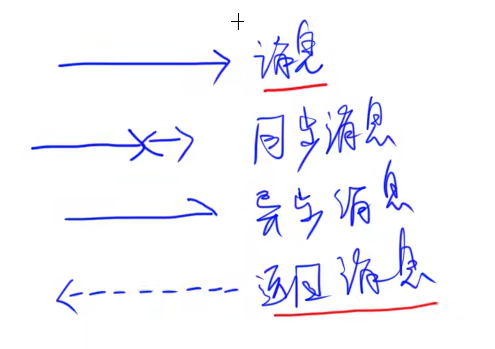 消息
同步消息
异步消息
返回消息